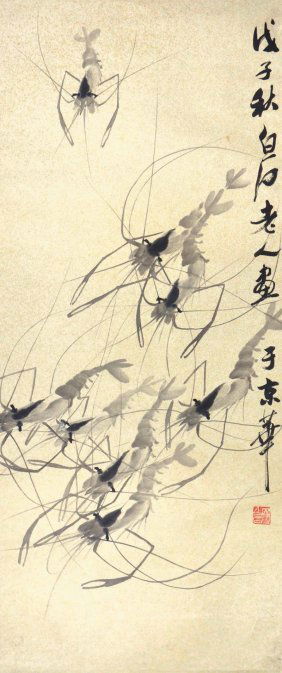 戊子秋白石老人画于京華